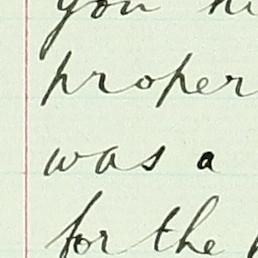 you
proper
was a
for the